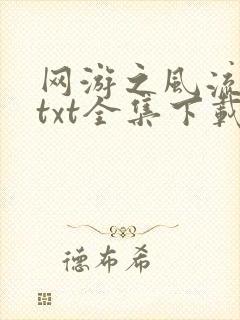 网游之风流
txt全集下载
德布希